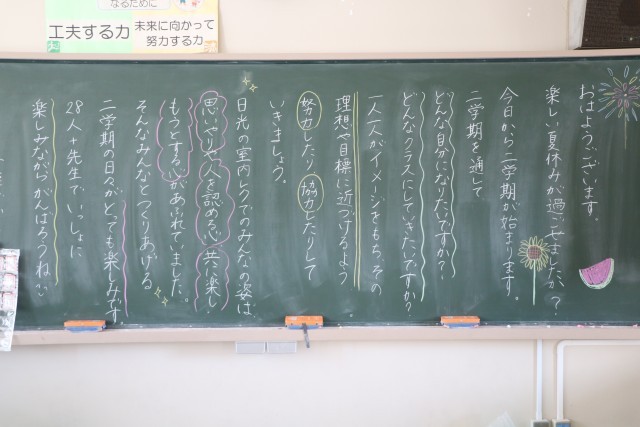 なるために
工夫する力
未来に向かって
努力する力
おはようございます。
楽しい夏休みが過ごせましたか?
今日から二学期が始まります。
二学期を通して
どんな自分になりたいですか?
どんなクラスにしていきたいですか?
一人一人がイメージをもち、その
理想や目標に近づけるよう
努力したり協力したりして
いきましょう。
日光の室内レクでのみんなの姿は
思いやりや人を認め合い共に楽し
もうとする心があふれていました。
そんなみんなとつくりあげる
二学期の日々がとっても楽しみです
28人+先生でいっしょに
楽しみながらがんばろうね